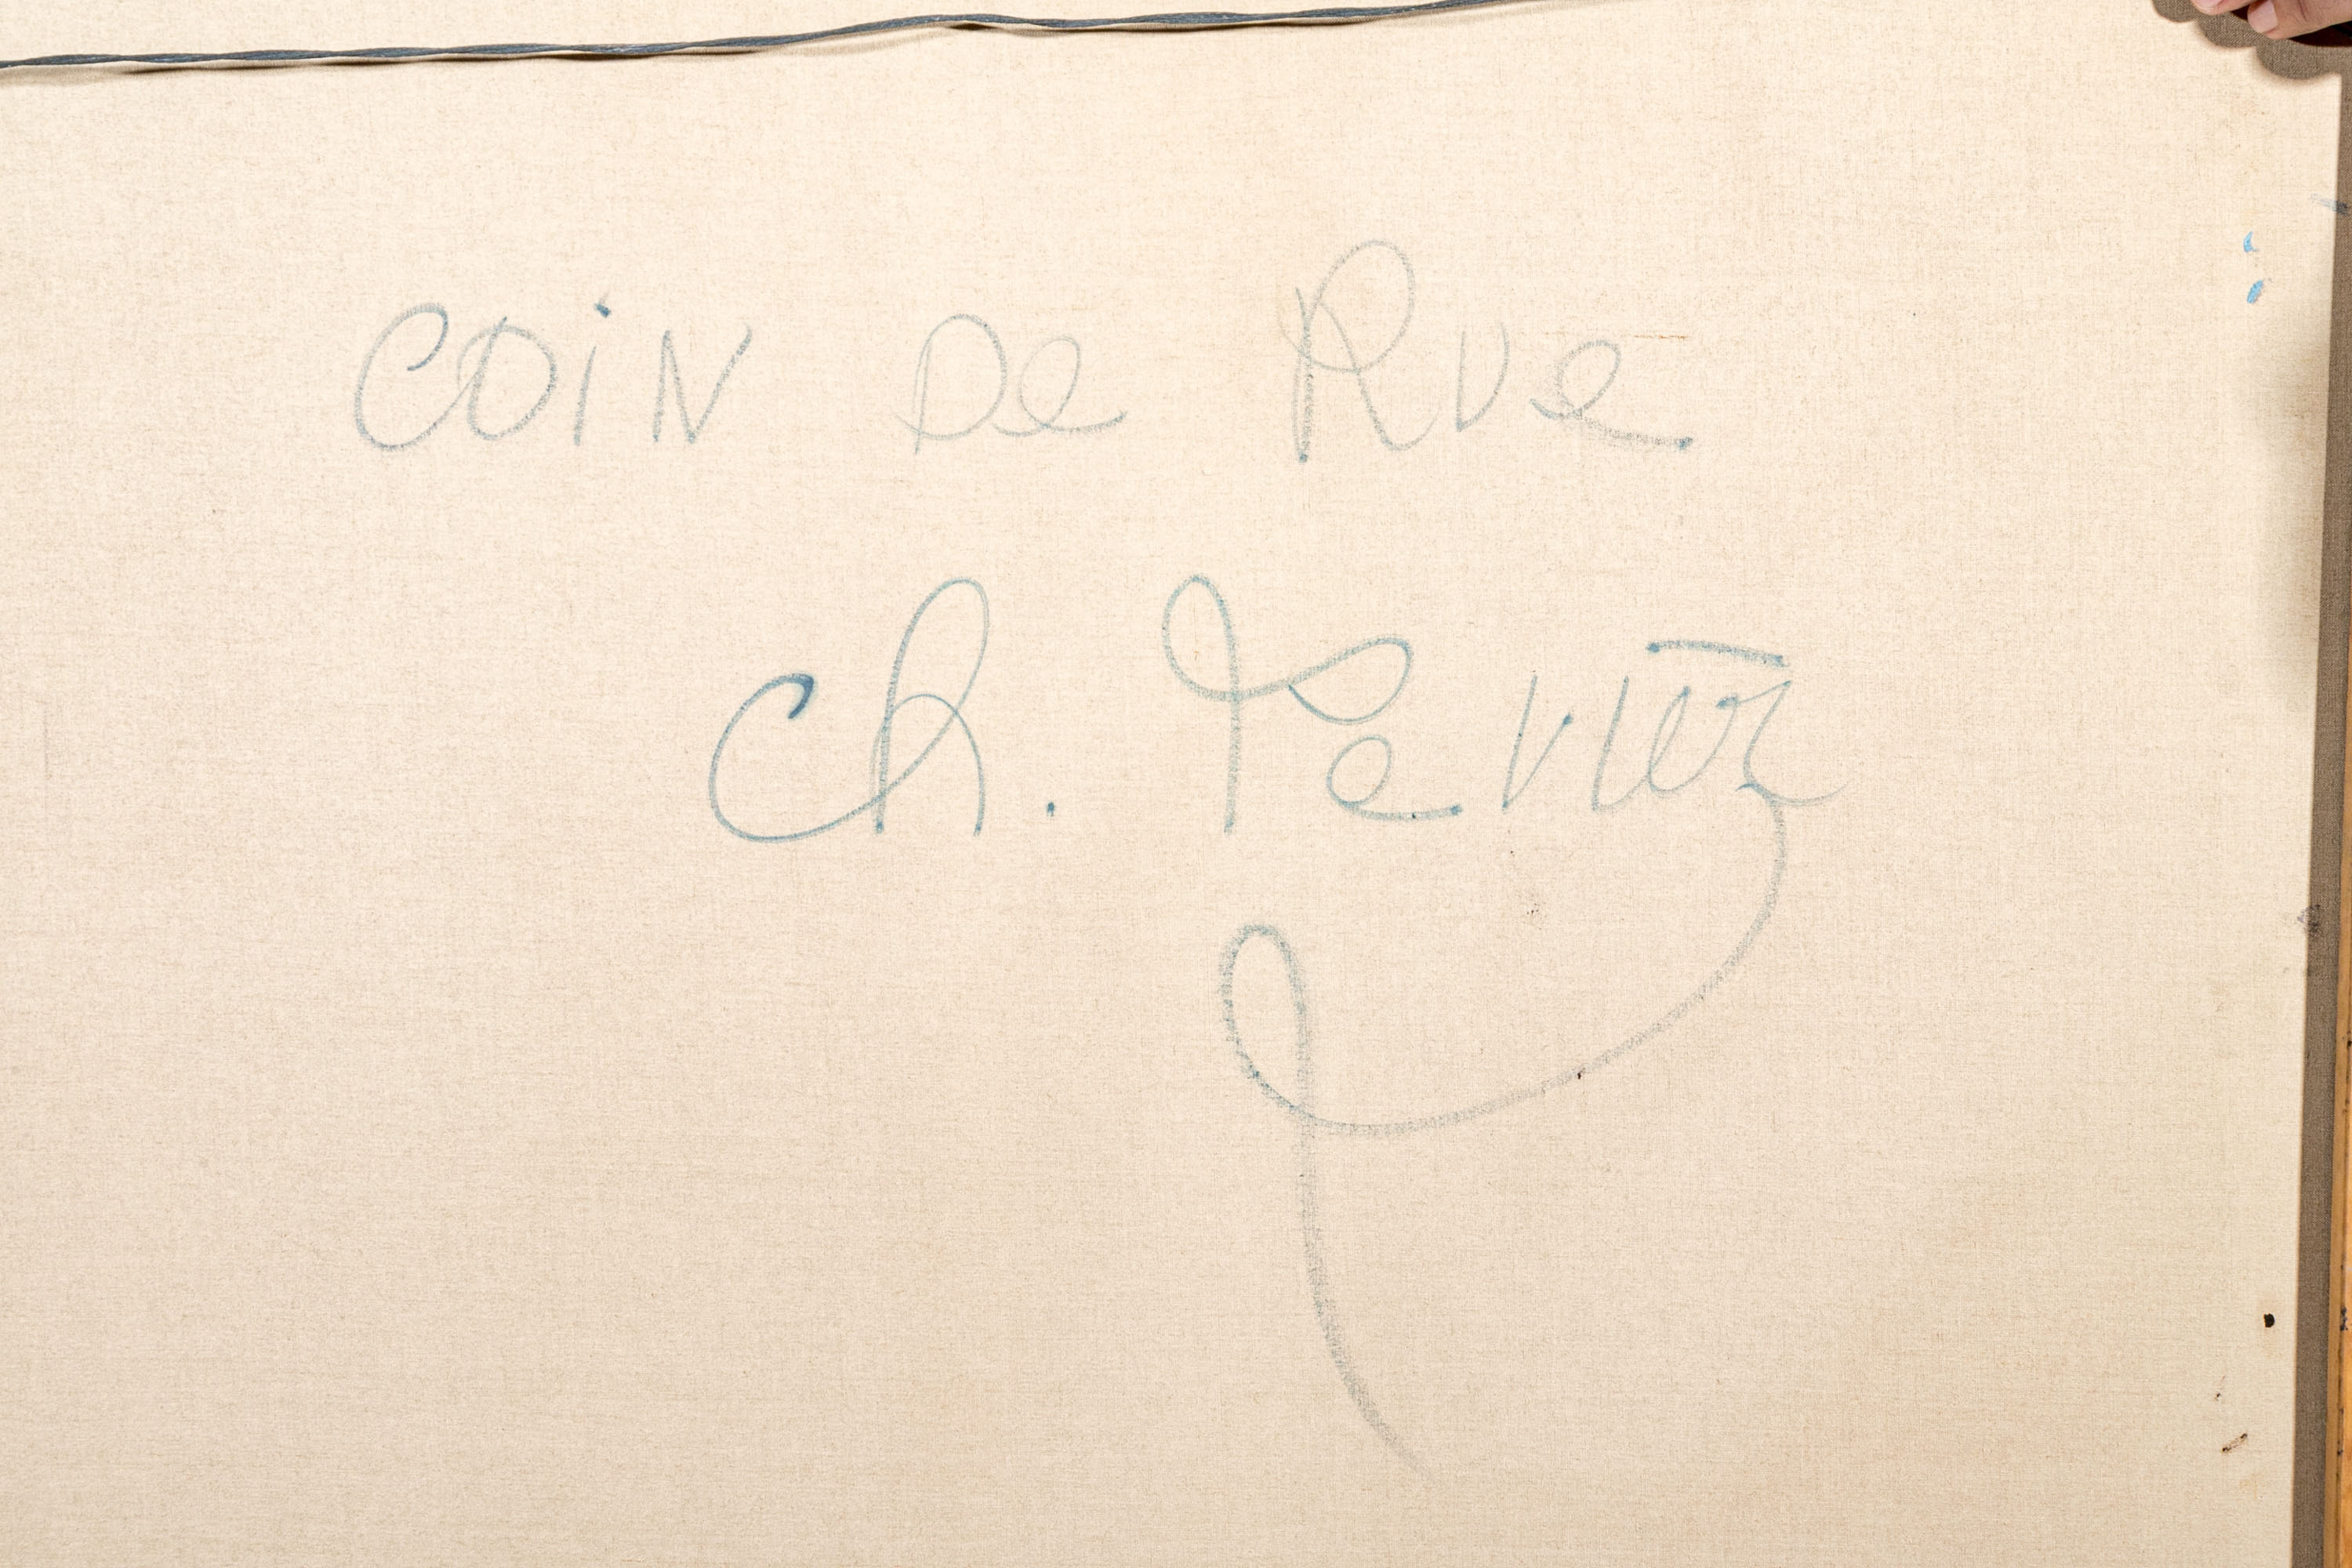 COiN De Rue
Ch. Levier